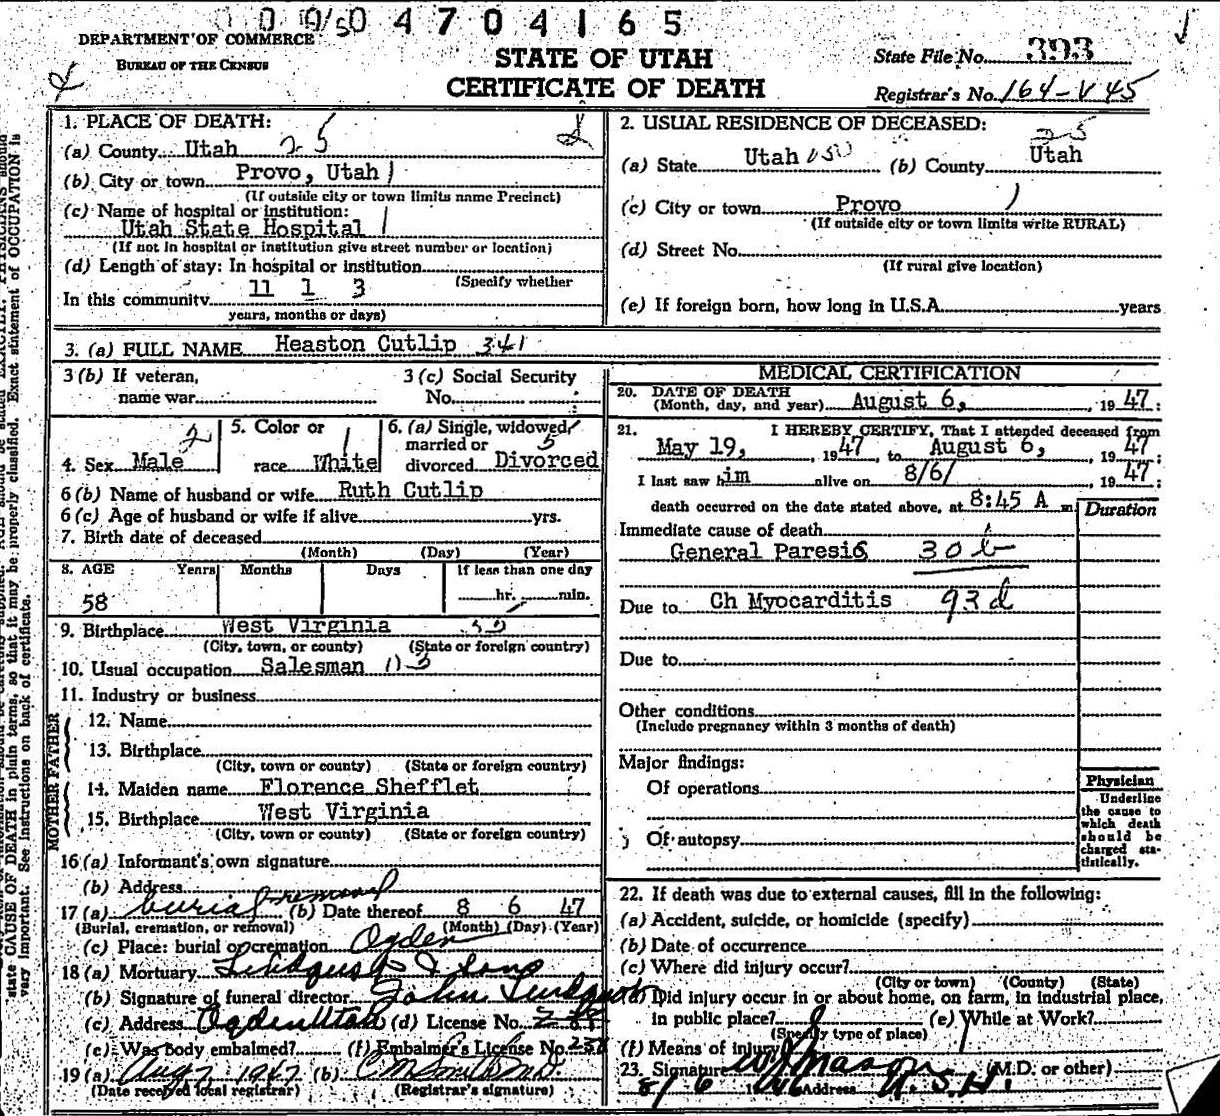 4704165
DEPARTMENT OF COMMERCE
BUREAU OF THE CENSUS
STATE OF UTAH
CERTIFICATE OF DEATH
State File No. 393
Registrar's No. 164-V45
1. PLACE OF DEATH:
(a) County Utah 25
(b) City or town Provo, Utah 1
(If outside city or town limits name Precinct)
(c) Name of hospital or institution:
Utah State Hospital 1
(If not in hospital or institution give street number or location)
(d) Length of stay: In hospital or institution
(Specify whether
In this community 11 1 3
years, months or days)
2. USUAL RESIDENCE OF DECEASED:
25
(a) State Utah 050 (b) County Utah
(c) City or town Provo 1
(If outside city or town limits write RURAL)
(d) Street No.
(If rural give location)
(e) If foreign born, how long in U.S.A. years
3. (a) FULL NAME Heaston Cutlip 341
3 (b) If veteran, name war
3 (c) Social Security No.
4. Sex Male 2
5. Color or race White 1
6. (a) Single, widowed, married or divorced Divorced 5
6 (b) Name of husband or wife Ruth Cutlip
6 (c) Age of husband or wife if alive yrs.
7. Birth date of deceased
(Month) (Day) (Year)
8. AGE Years Months Days If less than one day
58 hr. min.
9. Birthplace West Virginia
(City, town, or county) (State or foreign country)
10. Usual occupation Salesman
11. Industry or business
FATHER
12. Name
13. Birthplace
(City, town or county) (State or foreign country)
MOTHER
14. Maiden name Florence Shefflet
15. Birthplace West Virginia
(City, town or county) (State or foreign country)
16 (a) Informant's own signature
(b) Address
17 (a) burial removal (b) Date thereof 8 6 47
(Burial, cremation, or removal) (Month) (Day) (Year)
(c) Place: burial or cremation Ogden
18 (a) Mortuary Lindquist & Sons
(b) Signature of funeral director John Lindquist
(c) Address Ogden Utah (d) License No.
(e) Was body embalmed? (f) Embalmer's License No.
19 (a) Aug 7 1947 (b)
(Date received local registrar) (Registrar's signature)
MEDICAL CERTIFICATION
20. DATE OF DEATH
(Month, day, and year) August 6, , 19 47 :
21. I HEREBY CERTIFY, That I attended deceased from
May 19, , 19 47 to August 6, , 19 47 :
I last saw him alive on 8/6/ , 19 47 :
death occurred on the date stated above, at 8:45 A m.
Duration
Immediate cause of death
General Paresis 30 b
Due to Ch Myocarditis 93d
Due to
Other conditions
(Include pregnancy within 3 months of death)
Major findings:
Of operations
Of autopsy
Physician
Underline
the cause to
which death
should be
charged sta-
tistically.
22. If death was due to external causes, fill in the following:
(a) Accident, suicide, or homicide (specify)
(b) Date of occurrence
(c) Where did injury occur?
(City or town) (County) (State)
(d) Did injury occur in or about home, on farm, in industrial place,
in public place? (e) While at Work?
(Specify type of place)
(f) Means of injury
23. Signature (M.D. or other)
8/6 1946 Address U.S.H.
state CAUSE OF DEATH in plain terms, so that it may be properly classified. Exact statement of OCCUPATION is
very important. See instructions on back of certificate.